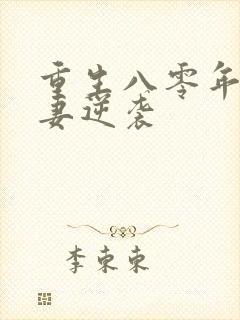 重生八零年
妻逆袭
李束束